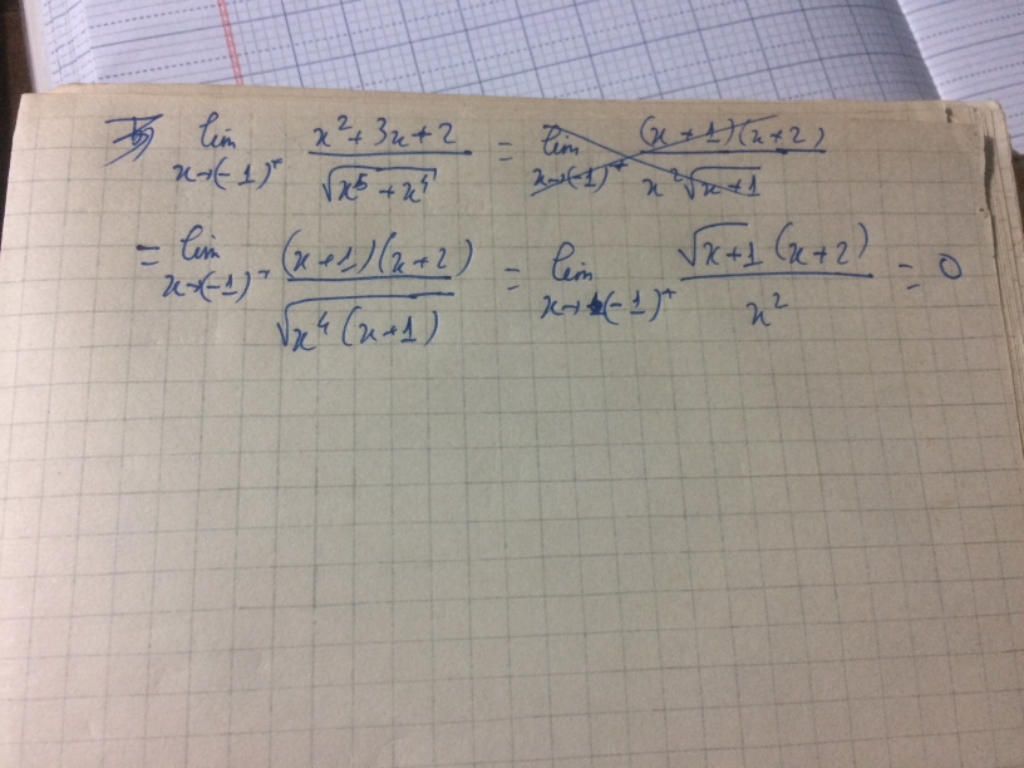 b) lim x→(-1)⁺ (x² + 3x + 2)/√(x⁵ + x⁴) = lim x→(-1)⁺ (x + 1)(x + 2)/(x²√(x + 1))
= lim x→(-1)⁺ (x + 1)(x + 2)/√(x⁴(x + 1)) = lim x→(-1)⁺ √(x + 1) (x + 2)/x² = 0